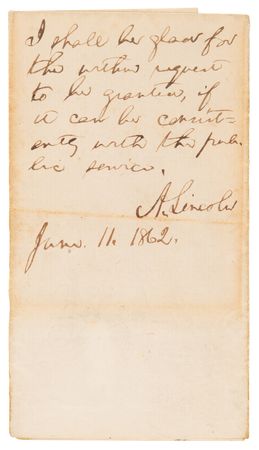 I shall be glad for
the within request
to be granted, if
it can be consist-
ently with the pub-
lic service.
A. Lincoln
June 11, 1862.